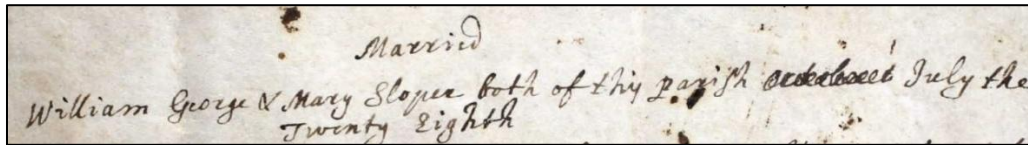 Married
William George & Mary Sloper both of this parish July the
Twenty Eighth